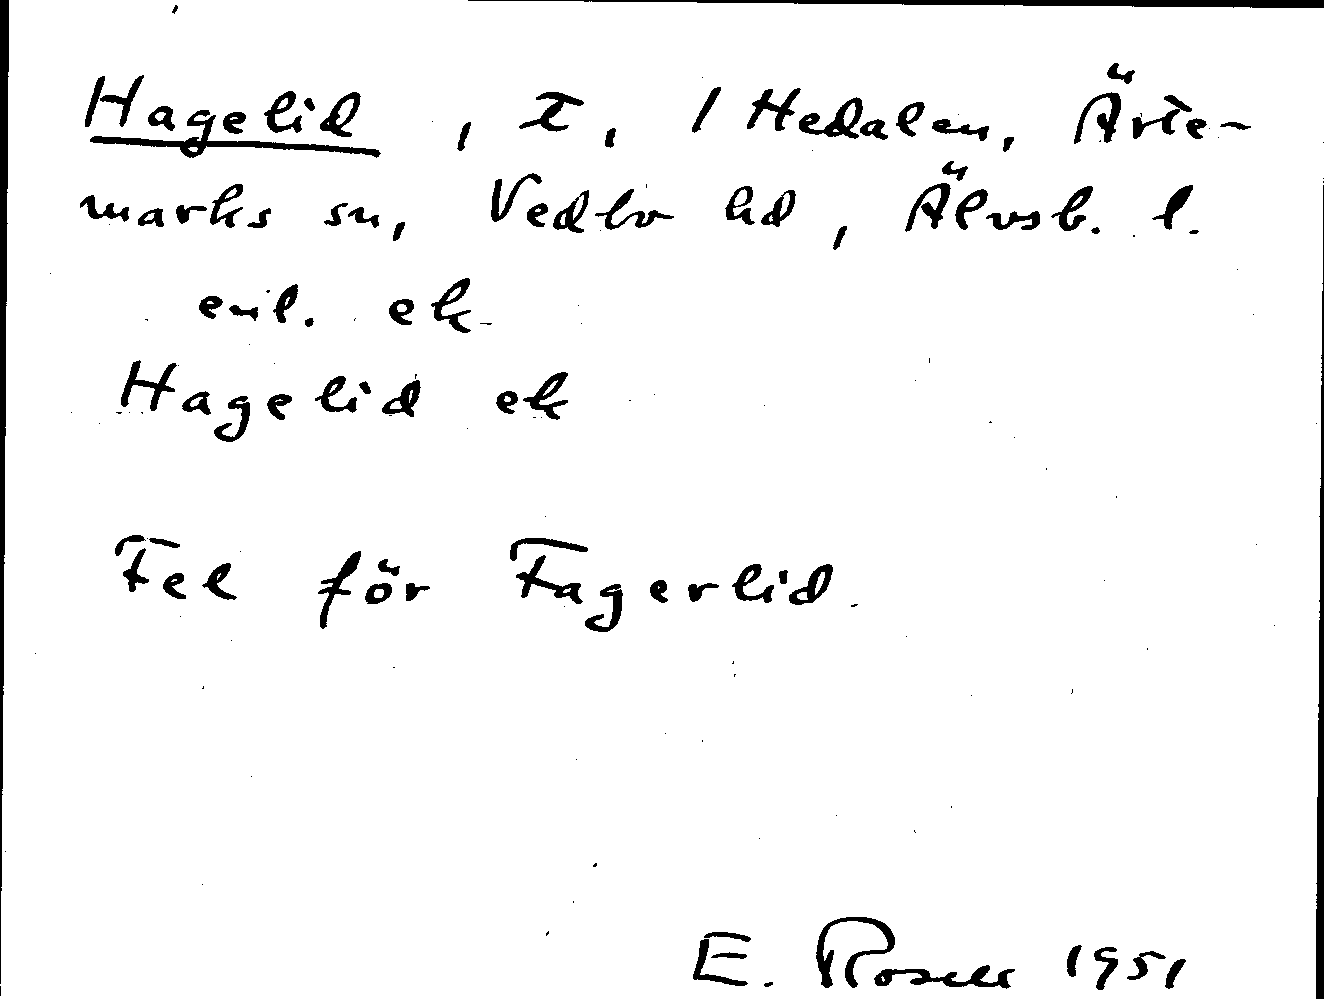 Hagelid, t, / Hedalen, Ärte-
marks sn, Vedbo hd, Älvsb. l.
enl. ek
Hagelid ek
Fel för Fagerlid
E. Rosell 1951